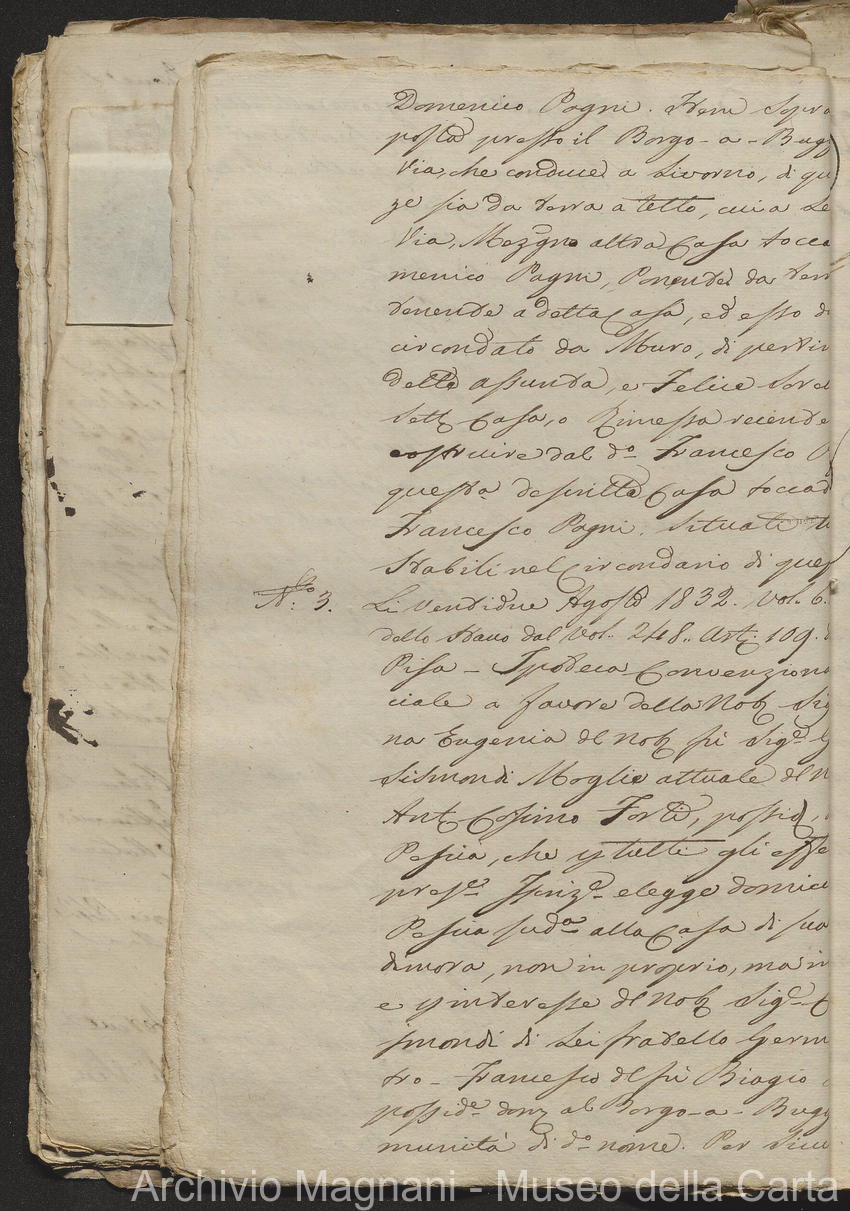 Domenico Pagni. Item Sopra
posta presso il Borgo-a-Bugg
Via, che conduce a Livorno, di qu
ze sia da terra a tetto, cui a Le
Via, Mezgno altra Casa tocca
menico Pagni, Ponente da terr
tenente a detta Casa, ed esso di
circondato da Muro, di pertin
della assunta, e Felice Sorel
Sett Casa, o Rimessa recente
costruire dal do Francesco
questa descritta Casa tocca d
Francesco Pagni. Situati
Stabili nel Circondario di ques
No. 3. Li Ventidue Agosto 1832. Vol. 6.
dello Stato dal Vol. 248. Art. 109.
Pisa - Ipoteca Convenziona
ciale a favore della Nob Sig
na Eugenia del Nob fù Sige
Sismondi Moglie attuale del N
Ant Cosimo Forti, possid,
Pescia, che p tutti gli effe
prese Iscrize elegge domici
Pescia suda alla Casa di sua
dimora, non in proprio, ma in
e p interesse del Nob Sige C
smondi di Lei fratello Germ
tro - Francesco del fù Biagio
posside domo al Borgo-a-Bugg
munità di do nome. Per Sicu
Archivio Magnani - Museo della Carta